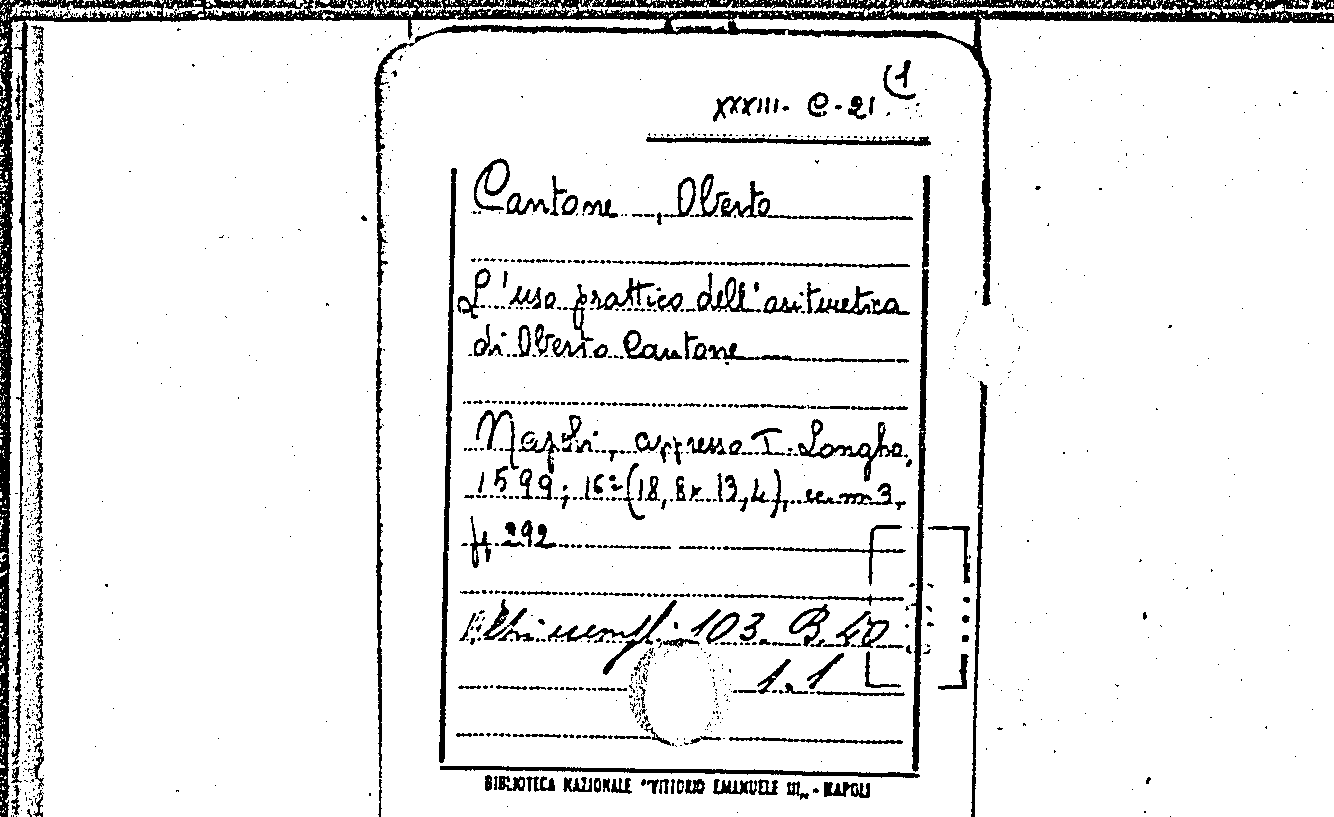 (1
XXXIII. C. 21.
Cantone, Oberto
L'uso prattico dell'aritmetica
di Oberto Cantone
Napoli, appresso T. Longho,
1599; 16° (18,8 x 13,4), cc. nn 3,
ff 292
Altri esempl: 103. B. 40
1.1
BIBLIOTECA NAZIONALE "VITTORIO EMANUELE III" - NAPOLI